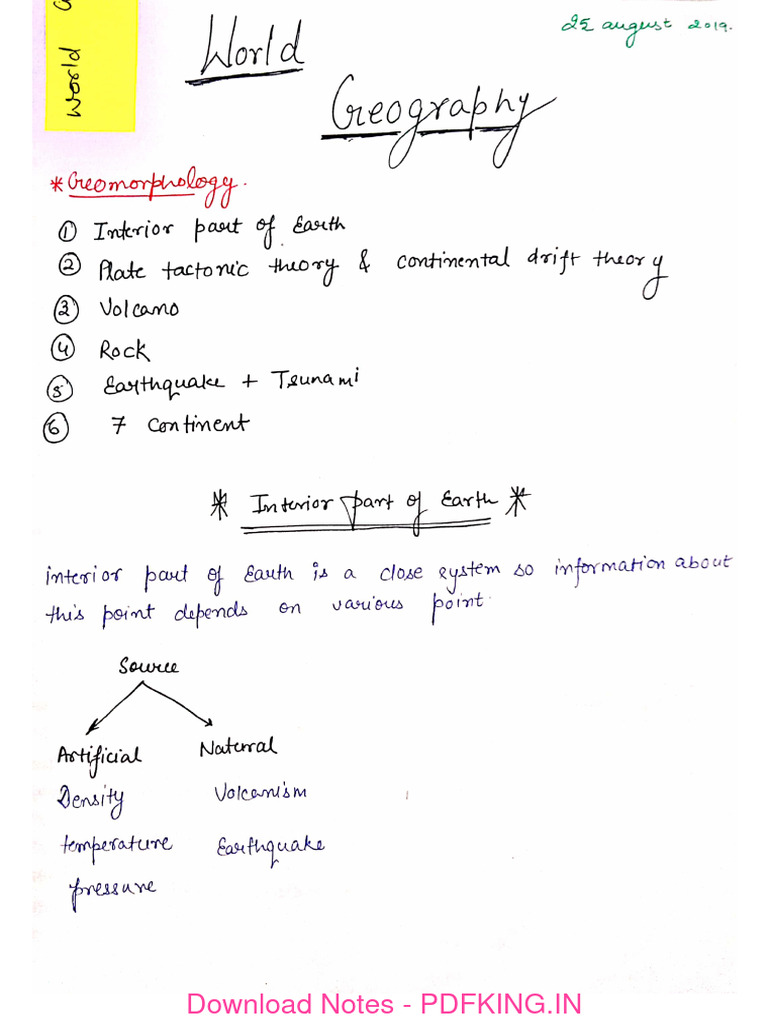 World G
25 august 2019.
World
Geography
* Geomorphology.
① Interior part of Earth
② Plate tactonic theory & continental drift theory
③ Volcano
④ Rock
⑤ Earthquake + Tsunami
⑥ 7 continent
* Interior part of Earth *
interior part of Earth is a close system so information about
this point depends on various point.
Source
Artificial Natural
Density Volcanism
temperature Earthquake
pressure
Download Notes - PDFKING.IN